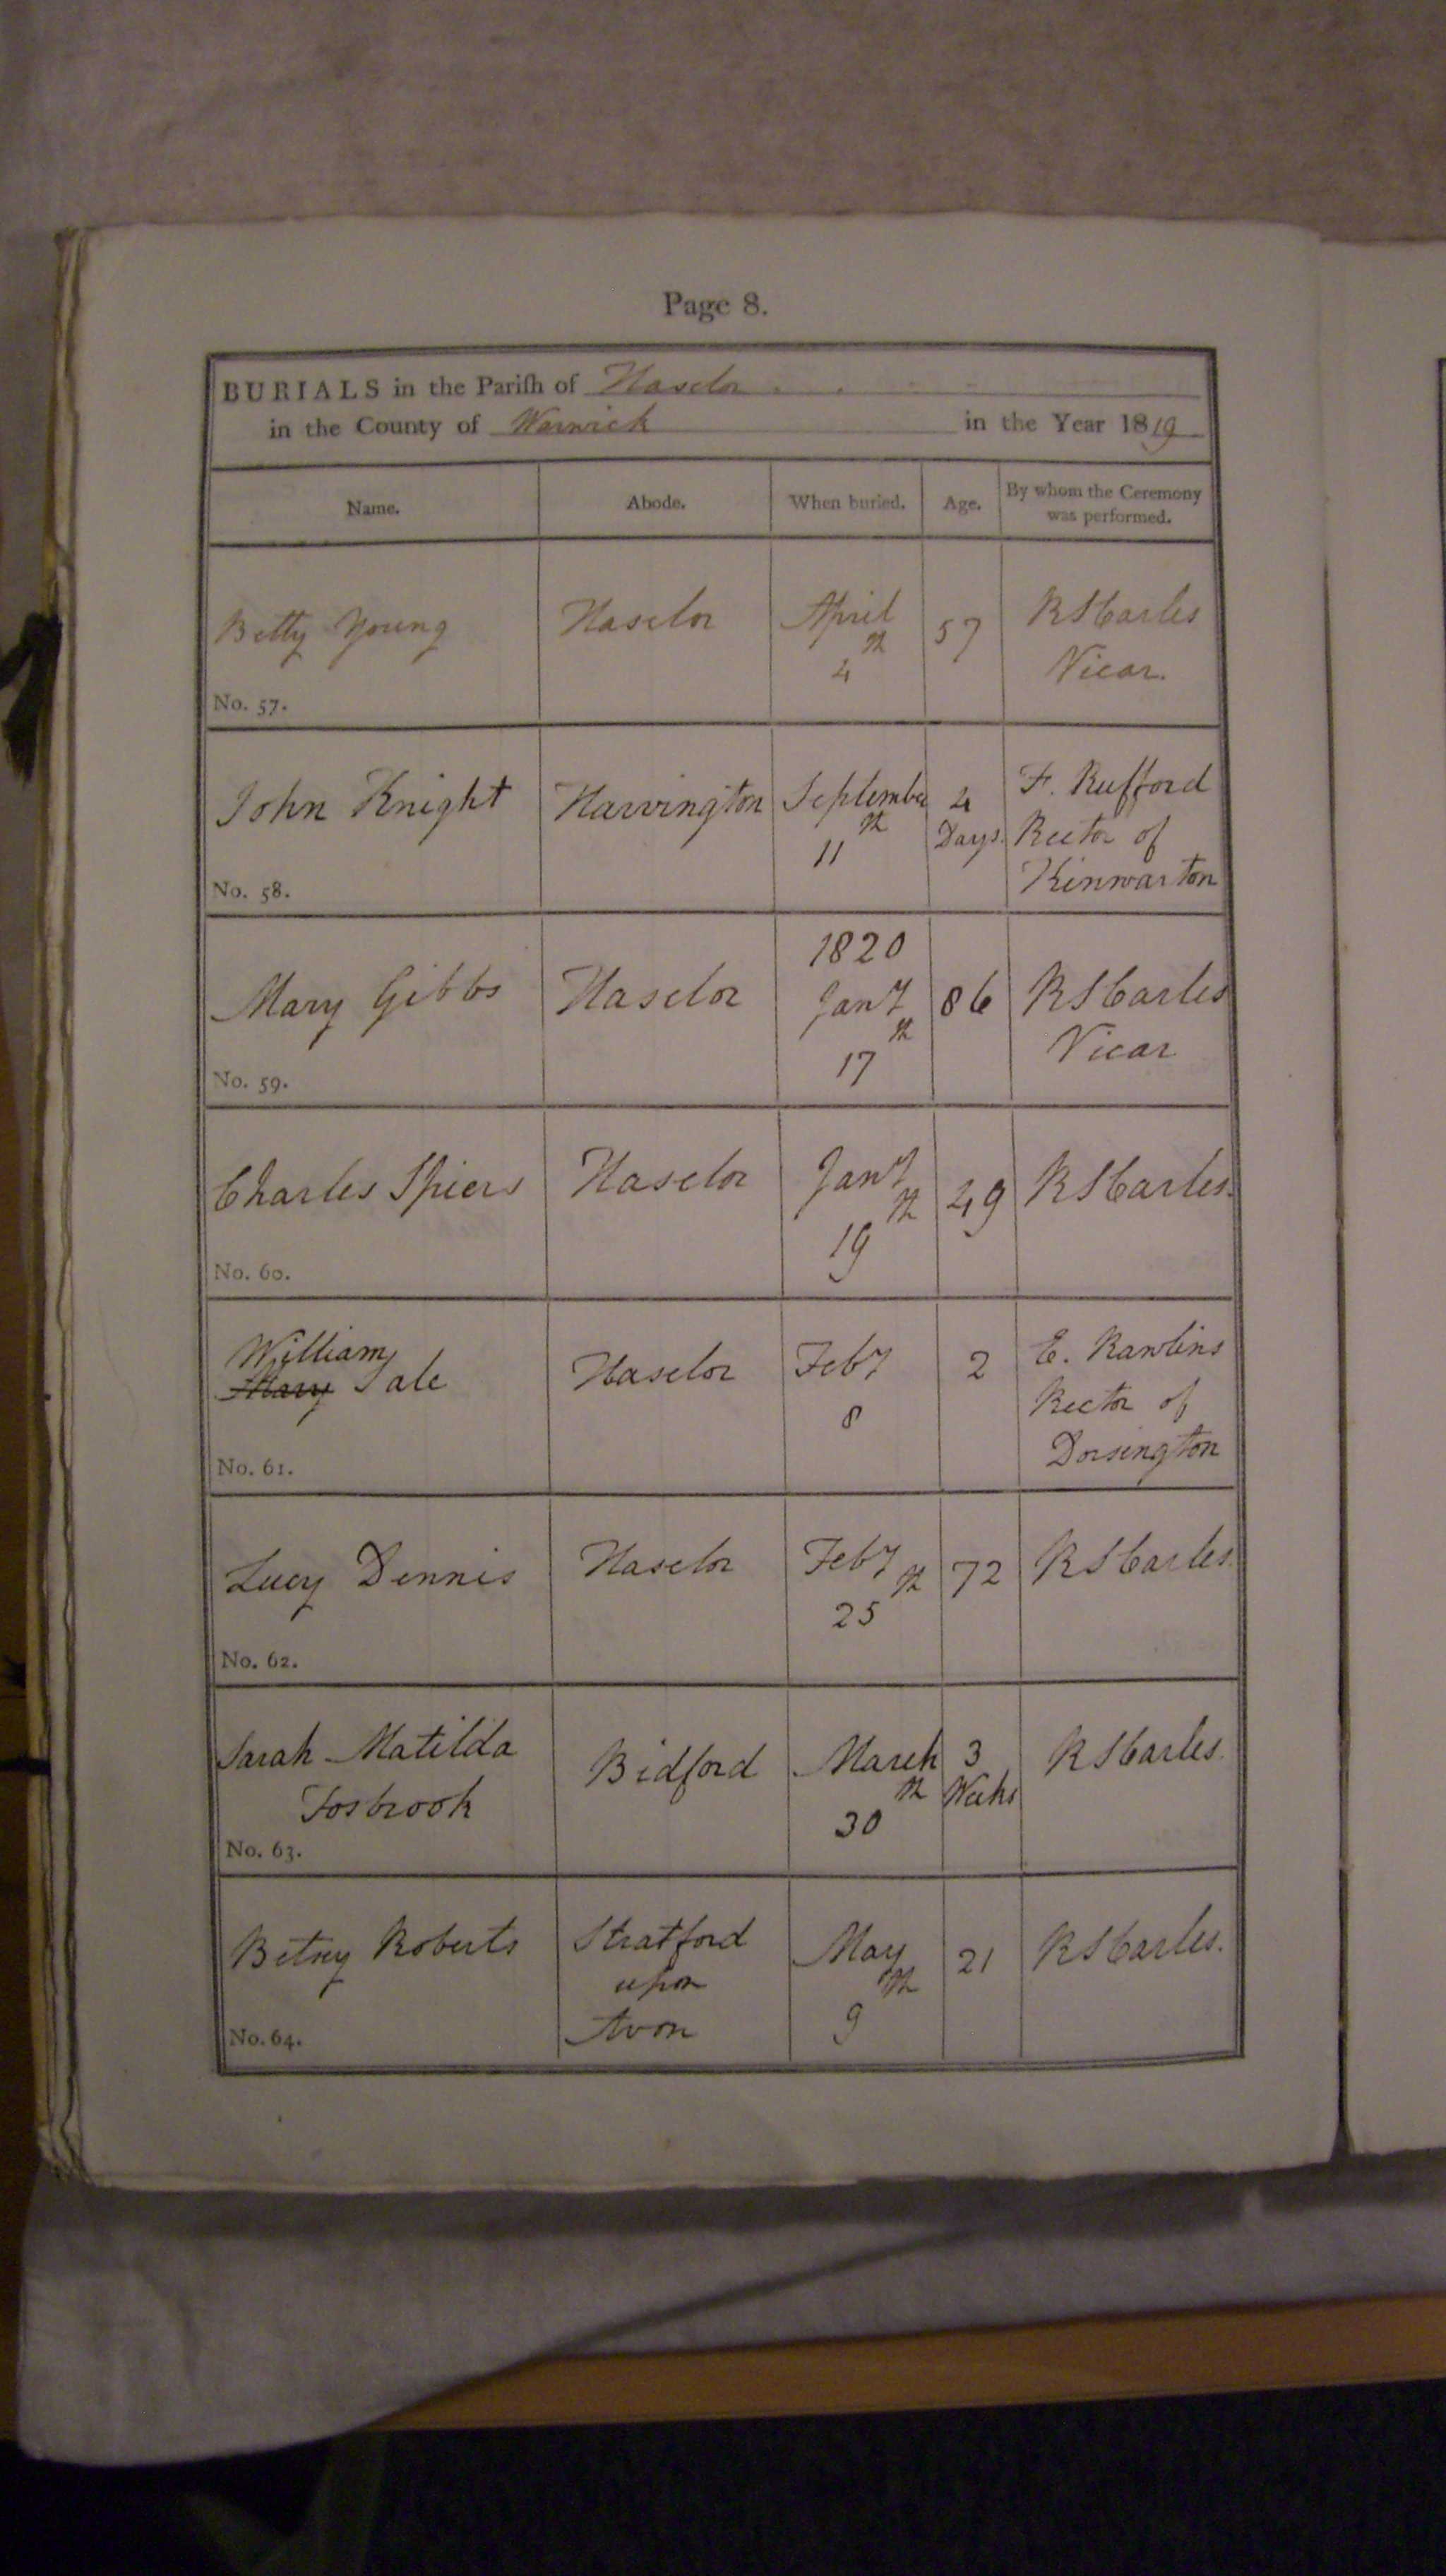 Page 8.
BURIALS in the Pariſh of Haselor
in the County of Warwick in the Year 1819
Name. Abode. When buried. Age. By whom the Ceremony was performed.
Betty Young Haselor April 4th 57 R S Carles Vicar.
No. 57.
John Knight Harvington September 11th 4 Days. F. Rufford Rector of Kinwarton
No. 58.
Mary Gibbs Haselor 1820 Jany 17th 86 R S Carles Vicar
No. 59.
Charles Spiers Haselor Jany 19th 49 R S Carles.
No. 60.
William
Mary Sale Haselor Feby 8 2 E. Rawlins Rector of Dorsington
No. 61.
Lucy Dennis Haselor Feby 25th 72 R S Carles.
No. 62.
Sarah Matilda Fosbrook Bidford March 30th 3 Weeks R S Carles.
No. 63.
Betsey Roberts Stratford upon Avon May 9th 21 R S Carles.
No. 64.